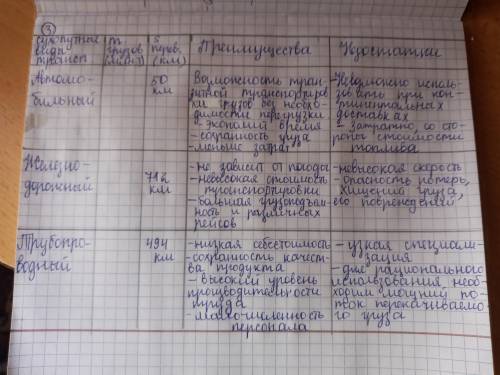 3
сухопутные виды трансп. | m грузов (млн.т) | s перев. (км) | Преимущества | Недостатки
Автомо-
бильный
50
км
Возможность тран-
зитной транспортиров
ки грузов без необхо-
димости перегрузки
- экономия времени
- сохранность груза
- меньше затрат
- Невозможно исполь-
зовать при кон-
тинентальных
доставках
- затратно, со сто-
роны стоимости
топлива
Железно-
дорожный
712
км
- не зависит от погоды
- невысокая стоимость
транспортировки
- большая грузоподъем-
ность и различных
рейсов
- невысокая скорость
- опасность потерь,
хищений груза,
его повреждений
Трубопро-
водный
494
км
- низкая себестоимость
- сохранность качест-
ва продукта
- высокий уровень
производительности
труда
- малочисленность
персонала
- узкая специали-
зация
- для рационального
использования необ-
ходим мощный по-
ток перекачиваемо-
го груза